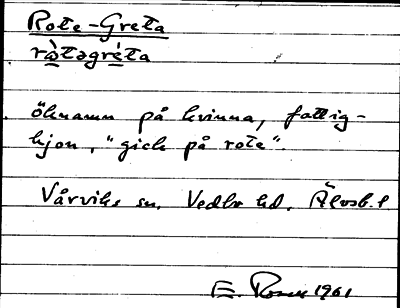 Rote-Greta
rò̱təgré̱ta
öknamn på kvinna, fattig-
hjon, "gick på rote".
Vårviks sn. Vedbo hd. Älvsb. l
E. Rosen 1961